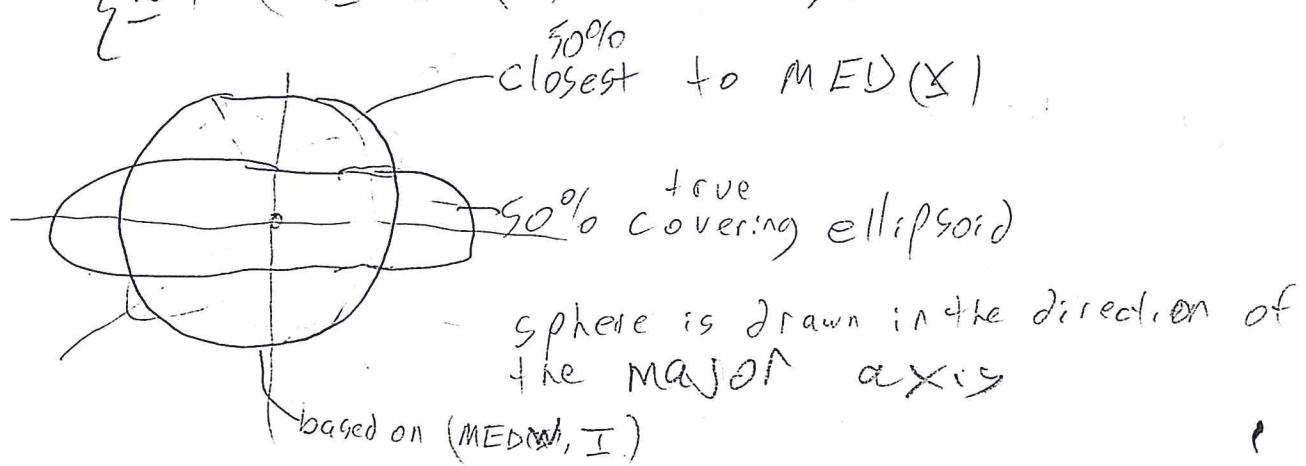 50%
closest to MED(X)
true
50% covering ellipsoid
sphere is drawn in the direction of
the major axis
based on (MED(W), I)